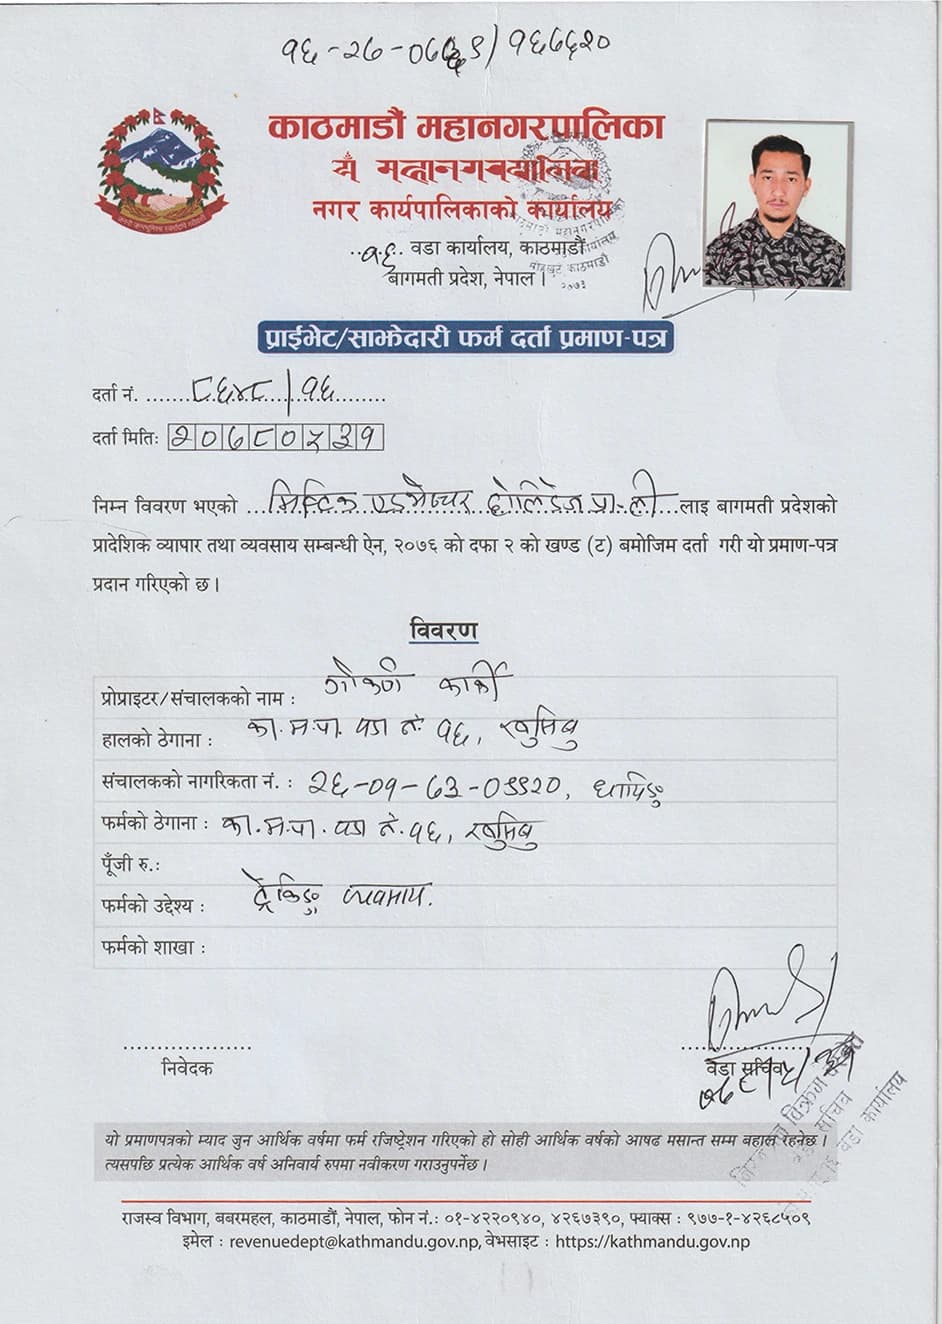 काठमाडौं महानगरपालिका
नगर कार्यपालिकाको कार्यालय
१६ वडा कार्यालय, काठमाडौं
बागमती प्रदेश, नेपाल ।
प्राईभेट/साझेदारी फर्म दर्ता प्रमाण-पत्र
दर्ता नं. ८६४८/१६
दर्ता मितिः २०७८०५३१
निम्न विवरण भएको मिस्टिक एडभेञ्चर होलिडेज प्रा.ली लाइ बागमती प्रदेशको
प्रादेशिक व्यापार तथा व्यवसाय सम्बन्धी ऐन, २०७६ को दफा २ को खण्ड (ट) बमोजिम दर्ता गरी यो प्रमाण-पत्र
प्रदान गरिएको छ ।
विवरण
प्रोप्राइटर/संचालकको नाम : गोकर्ण कार्की
हालको ठेगाना : का.म.पा. वडा नं. १६,
संचालकको नागरिकता नं. : २६-०१-७३-०९९२०, धादिङ्ग
फर्मको ठेगाना : का.म.पा. वडा नं. १६,
पूँजी रु.:
फर्मको उद्देश्य : ट्रेकिङ्ग व्यवसाय.
फर्मको शाखा :
निवेदक
वडा सचिव
यो प्रमाणपत्रको म्याद जुन आर्थिक वर्षमा फर्म रजिष्ट्रेशन गरिएको हो सोही आर्थिक वर्षको आषढ मसान्त सम्म बहाल रेहनेछ ।
त्यसपछि प्रत्येक आर्थिक वर्ष अनिवार्य रुपमा नवीकरण गराउनुपर्नेछ ।
राजस्व विभाग, बबरमहल, काठमाडौं, नेपाल, फोन नं.: ०१-४२२०९४०, ४२६७३९०, फ्याक्स : ९७७-१-४२६८५०९
इमेल : revenuedept@kathmandu.gov.np, वेभसाइट : https://kathmandu.gov.np